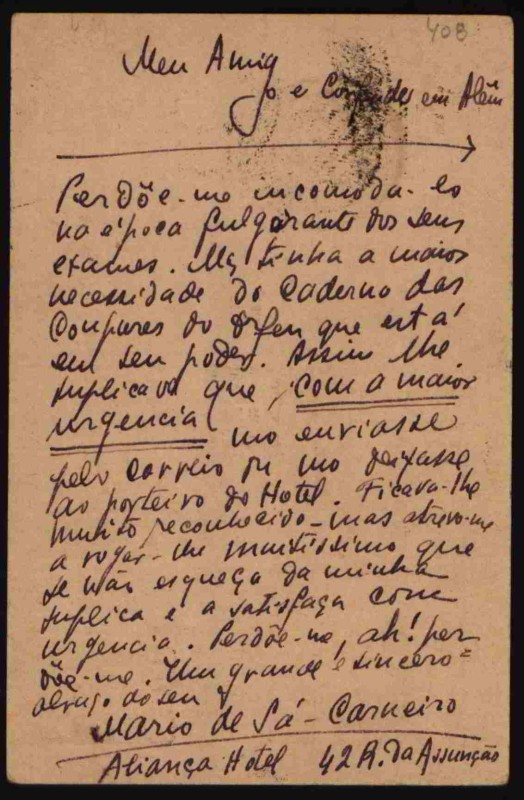 408
Meu Amigo
e Confrade em Além
Perdôe-me incomoda-lo
na época fulgurante dos seus
exames. Mas tinha a maior
necessidade do Caderno das
do Orfeu que está
em seu poder. Assim lhe
suplicava que, com a maior
urgencia mo enviasse
pelo correio ou mo deixasse
ao porteiro do Hotel. Ficava-lhe
muito reconhecido - mas atrevo-me
a rogar-lhe muitissimo que
se não esqueça da minha
suplica e a satisfaça com
urgencia. Perdôe-me, ah! per
dôe-me. Um grande e sincero
abraço do seu
Mario de Sá-Carneiro
Aliança Hotel 42 R. da Assunção